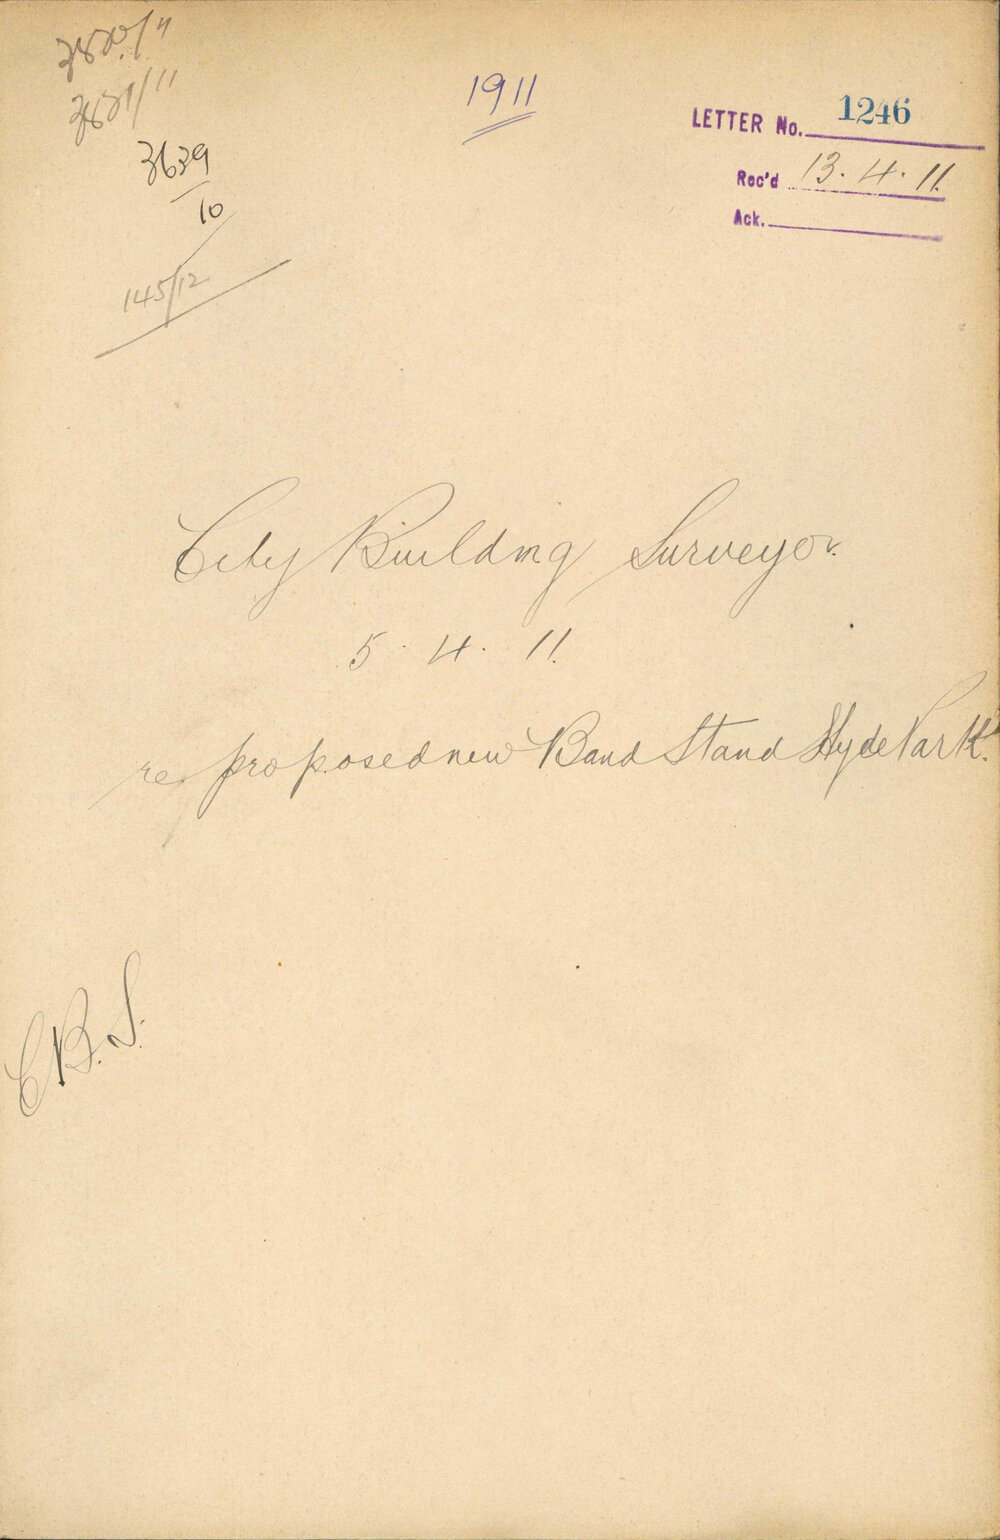 3820/11
3821/11
3639
10
145/12
1911
LETTER No. 1246
Rec'd 13.4.11.
Ack.
City Building Surveyor.
5.4.11.
re. proposed new Band Stand Hyde Park.
C.B.S.